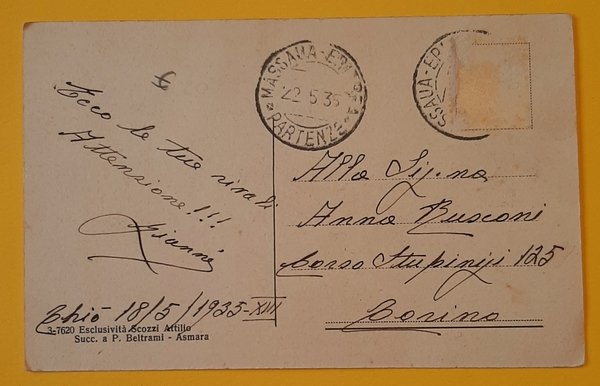 Ecco le tue rivali
Attenzione!!!
Gianni
Ghió 18/5/1935-XIII
3-7620 Esclusività Scozzi Attilio
Succ. a P. Beltrami - Asmara
MASSAUA-ERITREA
22.5.35
PARTENZE
MASSAUA-ERI
Alla Sig.na
Anna Busconi
Corso Stupinigi 125
Torino